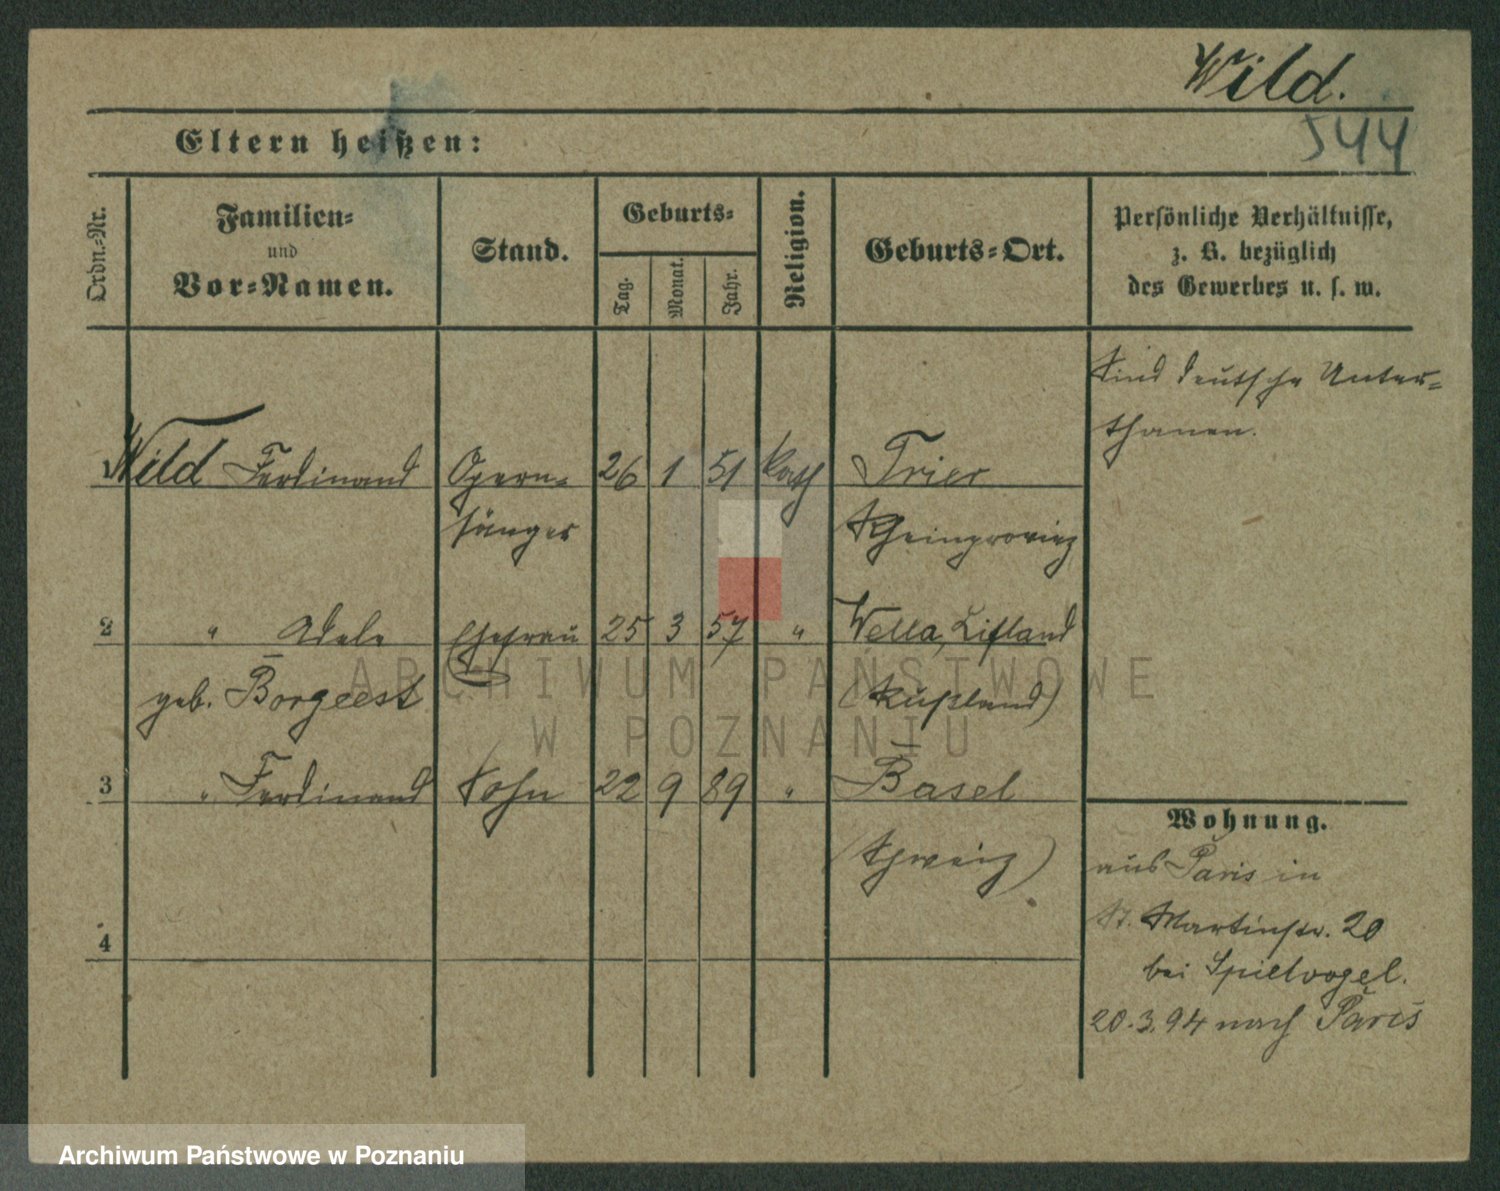 Wild.
544
Eltern heißen:
Ordn.=Nr.
Familien=
und
Vor=Namen.
Stand.
Geburts=
Tag.
Monat.
Jahr.
Religion.
Geburts=Ort.
Persönliche Verhältnisse,
z. B. bezüglich
des Gewerbes u. s. w.
Sind deutsche Unter=
thanen.
Wild Ferdinand Opern= 26 1 51 kath Trier
sänger Rheinprovinz
2 " Adele Ehefrau 25 3 57 " Wella, Lifland
geb. Borgeest (Rußland)
3 " Ferdinand Sohn 22 9 89 " Basel
(Schweiz)
4
Wohnung.
aus Paris in
St. Martinstr. 20
bei Spielvogel.
20.3.94 nach Paris
ARCHIWUM PAŃSTWOWE
W POZNANIU
Archiwum Państwowe w Poznaniu